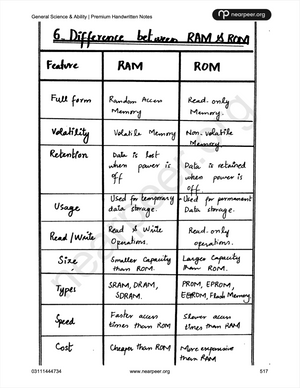 General Science & Ability | Premium Handwritten Notes
nearpeer.org
6. Difference between RAM & ROM
Feature RAM ROM
Full form Random Access Read. only
Memory Memory.
Volatility Volatile Memory Non-volatile
Memory.
Retention Data is lost Data is retained
when power is when power is
off off.
Usage Used for temporary Used for permanent
data storage. Data storage.
Read/Write Read & Write Read. only
Operations. operations.
Size Smaller Capacity Larger Capacity
than ROM. than ROM.
Types SRAM, DRAM, PROM, EPROM,
SDRAM. EEROM, Flash Memory.
Speed Faster access Slower access
times than ROM times than RAM
Cost Cheaper than ROM More expensive
than RAM
nearpeer.org
03111444734 www.nearpeer.org 517